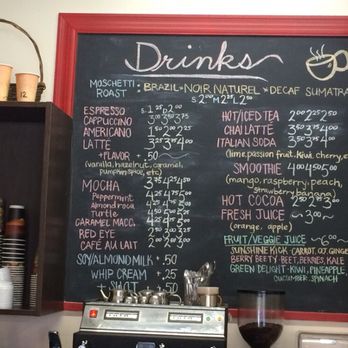 Drinks
MOSCHETTI ROAST: BRAZIL-NOIR NATUREL DECAF SUMATRA
S 2.00 M 2.25 L 2.50
ESPRESSO S 1.25 D 2.00
CAPPUCCINO 3.00 3.50 3.75
AMERICANO 1.50 2.00 2.25
LATTE 3.25 3.75 4.00
+FLAVOR +.50
(vanilla, hazelnut, caramel,
pumpkin spice, etc)
MOCHA 3.75 4.25 4.50
Peppermint
Almond roca
Turtle
CARAMEL MACC.
RED EYE
CAFÉ AU LAIT
SOY/ALMOND MILK +.50
WHIP CREAM +.25
+ SHOT
HOT/ICED TEA 2.00 2.25 2.50
CHAI LATTE 3.50 3.75 4.00
ITALIAN SODA 3.50 3.75 4.00
(lime, passion fruit, kiwi, cherry,
SMOOTHIE 4.00 4.50 5.00
(mango, raspberry, peach,
strawberry banana)
HOT COCOA 2.50
FRESH JUICE ~ 3.00 ~
(orange, apple)
FRUIT/VEGGIE JUICE ~6.00
SUNSHINE KICK-CARROT, OJ, GINGER
BERRY BEETY-BEET, BERRIES, KALE
GREEN DELIGHT-KIWI, PINEAPPLE,
CUCUMBER, SPINACH
12